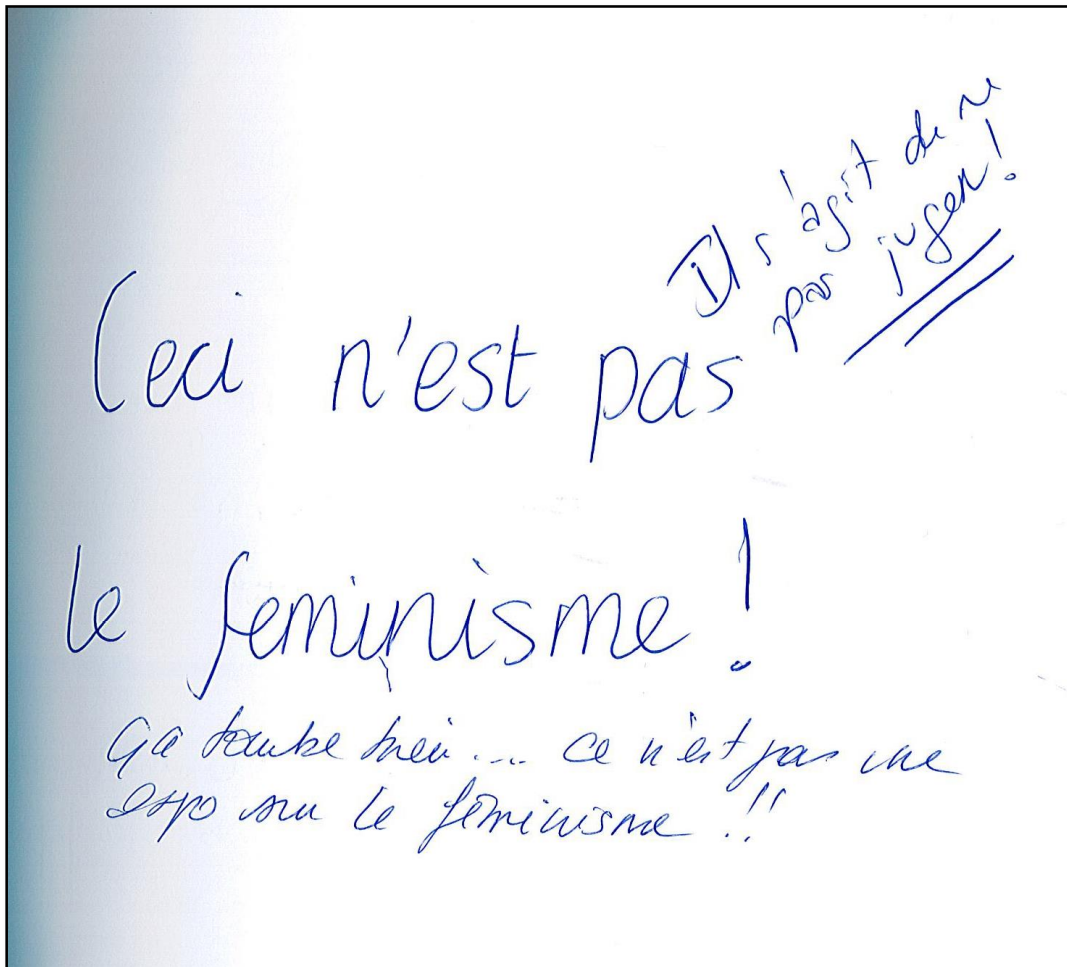 Il s'agit de ne
pas juger!
Ceci n'est pas
le feminisme !
ça tombe bien... ce n'est pas une
expo sur le féminisme !!